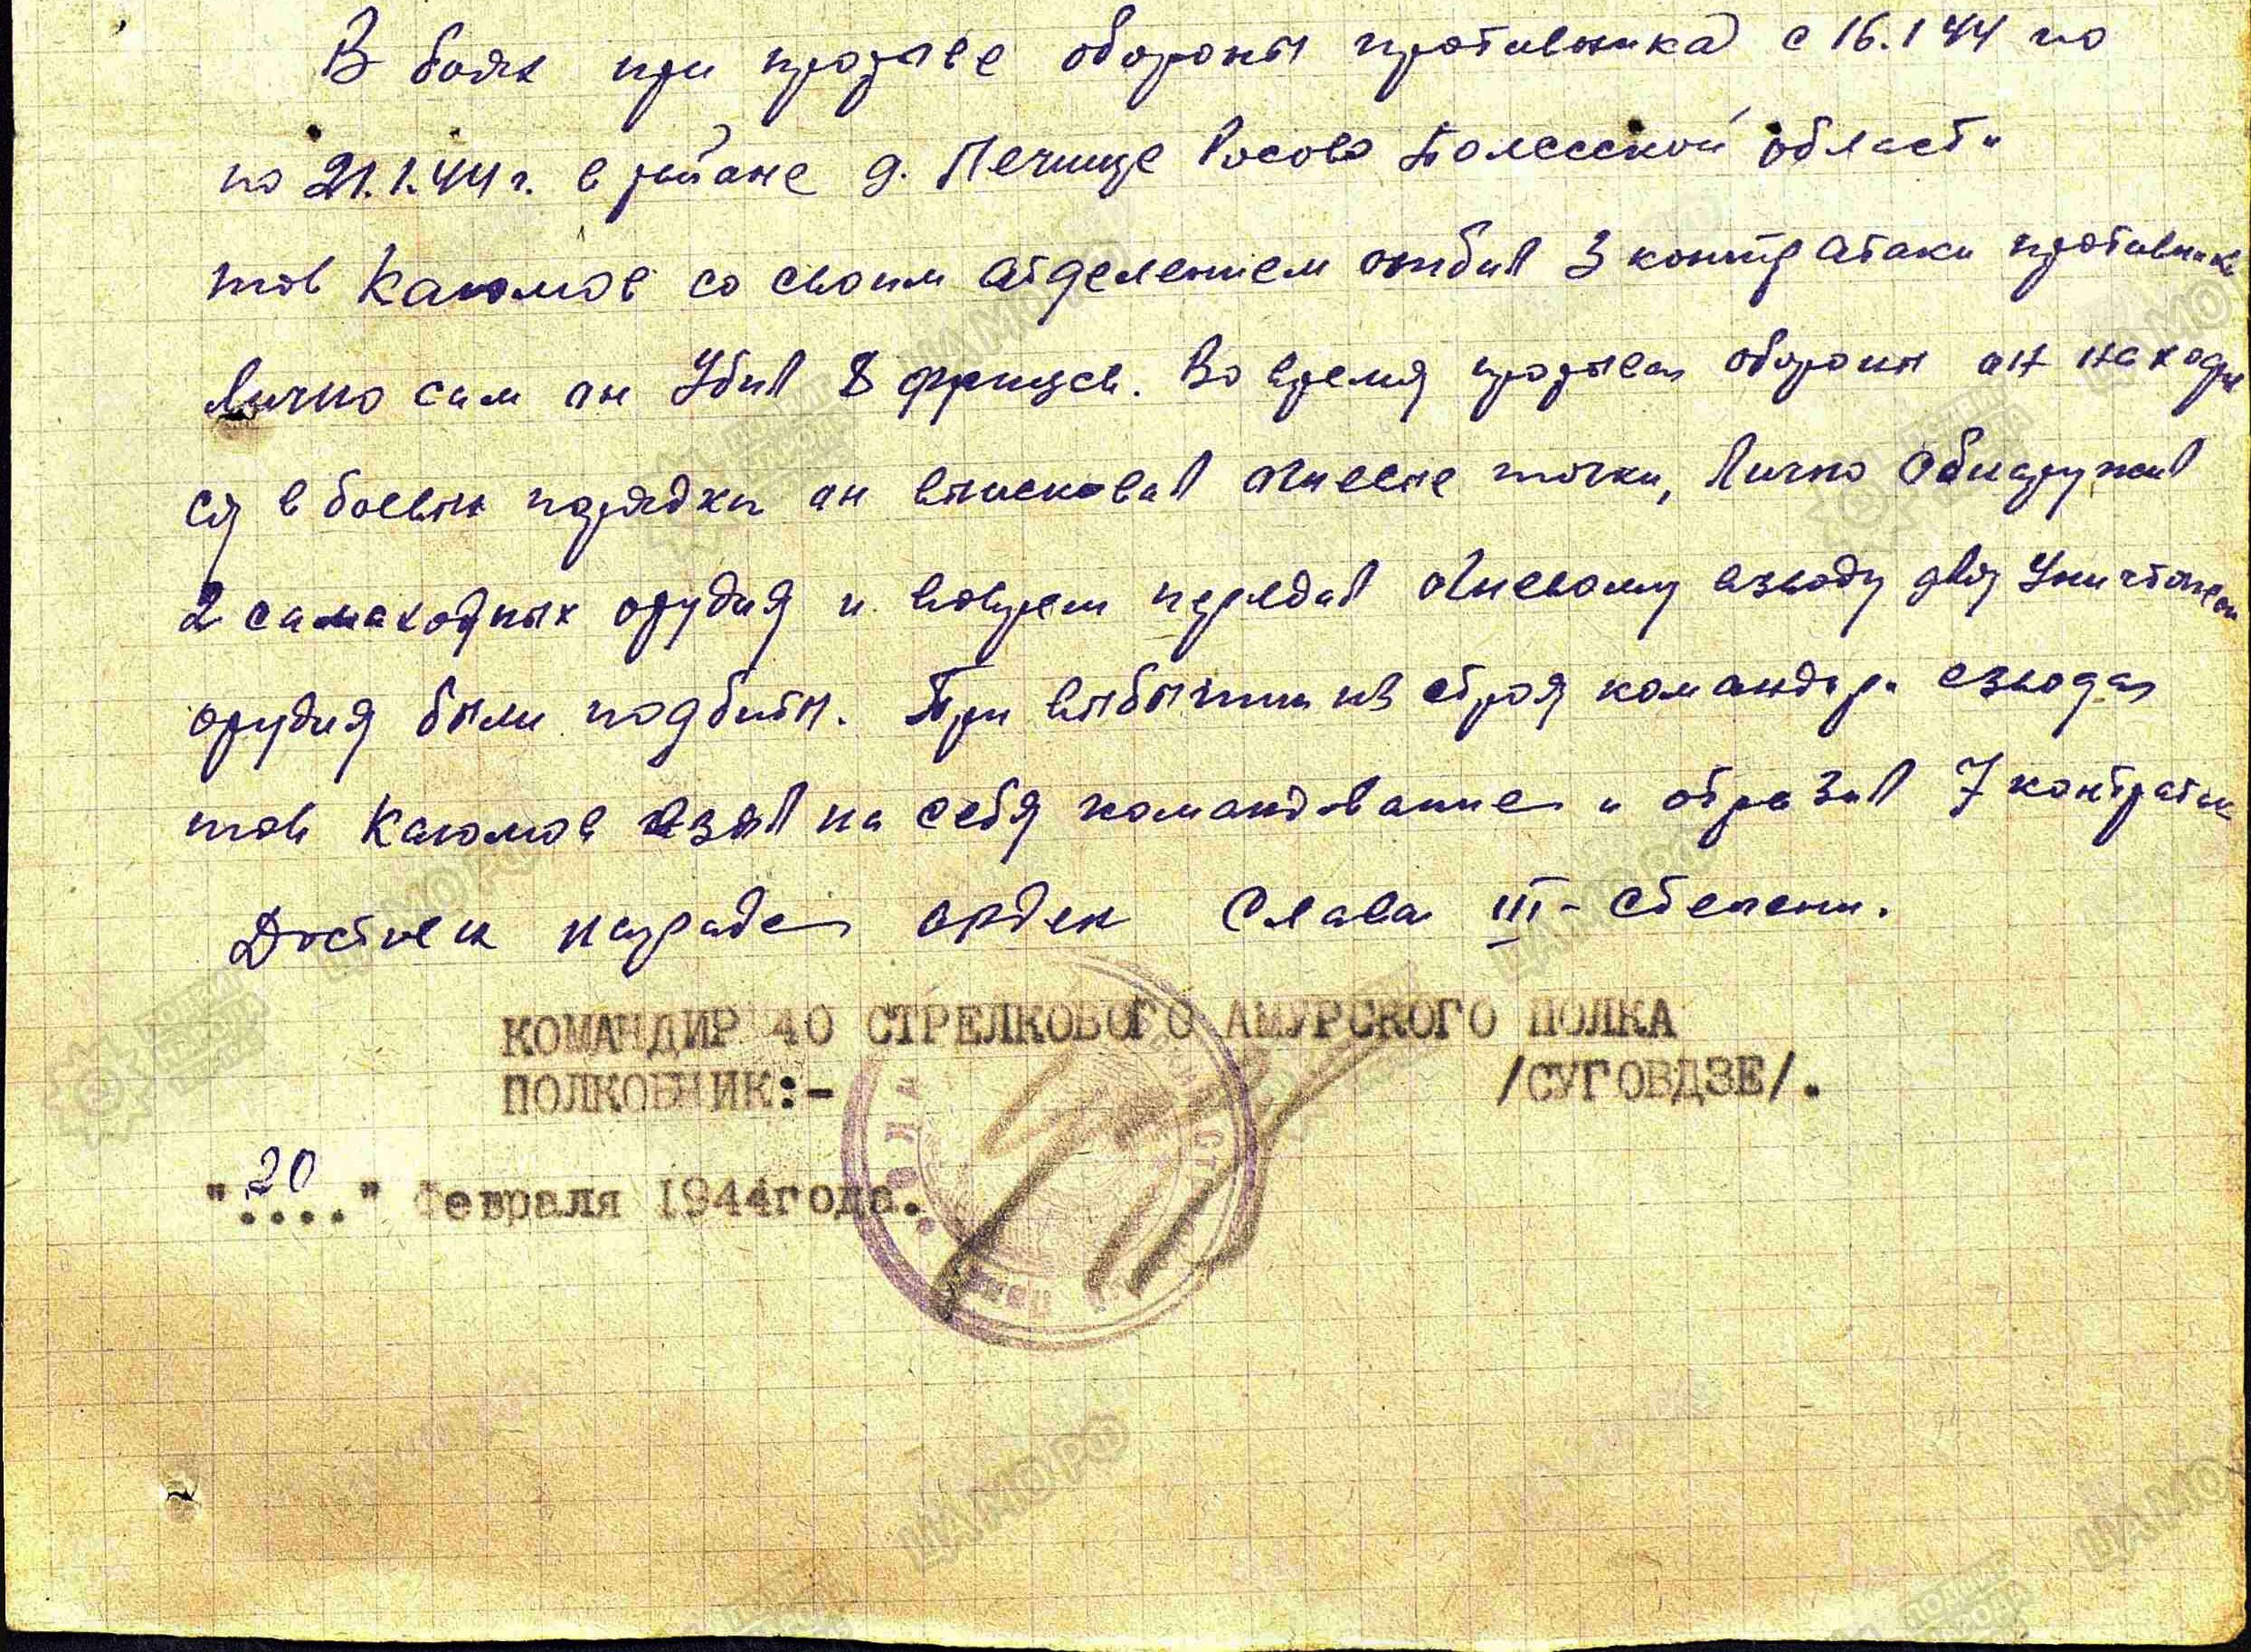 В боях при прорыве обороны противника с 16.1 44 по
по 21.1.44 г. в районе д. Печище Росово Полесской области
тов Каюмов со своим атделением отбил 3 контратаки противника
Лично сам он Убил 8 фрицев. Во время прорыва обороны он находил
ся в боевых порядках он выисковал огневые точки, Лично Обнаружил
2 самаходных орудия и вовремя передал огневому взводу для Уничтожения
орудия были подбиты. При выбытии из строя командир взвода
тов Каюмов взял на себя командование и отразил 7 контратак
Достоен награде орден Слава III-степени.
КОМАНДИР 40 СТРЕЛКОВОГО АМУРСКОГО ПОЛКА
ПОЛКОВНИК:- /СУГОВДЗЕ/.
"20" февраля 1944года.
ЦАМО РФ